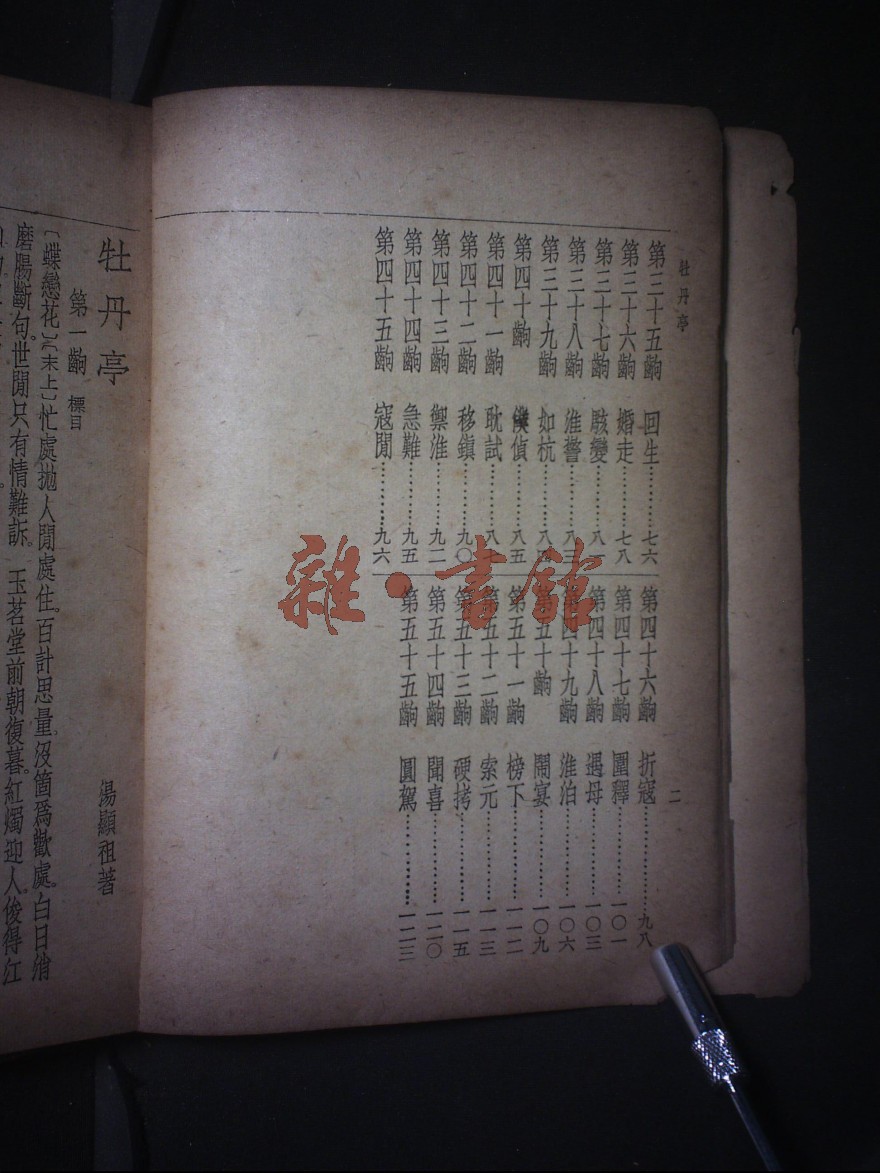 牡丹亭
第三十五齣 回生…………七六
第三十六齣 婚走…………七八
第三十七齣 駭變…………八一
第三十八齣 淮警…………八三
第三十九齣 如杭…………八四
第四十齣 僕偵…………八五
第四十一齣 耽試…………八
第四十二齣 移鎮…………九〇
第四十三齣 禦淮…………九二
第四十四齣 急難…………九五
第四十五齣 寇閒…………九六
第四十六齣 折寇…………九八
第四十七齣 圍釋…………一〇一
第四十八齣 遇母…………一〇三
第四十九齣 淮泊…………一〇六
第五十齣 鬧宴…………一〇九
第五十一齣 榜下…………一一二
第五十二齣 索元…………一一三
第五十三齣 硬拷…………一一五
第五十四齣 聞喜…………一二〇
第五十五齣 圓駕…………一二三
二
雜·書館
牡丹亭
湯顯祖著
第一齣 標目
〔蝶戀花〕〔末上〕忙處拋人閒處住。百計思量,沒箇爲歡處。白日綃
磨腸斷句。世閒只有情難訴。 玉茗堂前朝復暮。紅燭迎人,俊得江